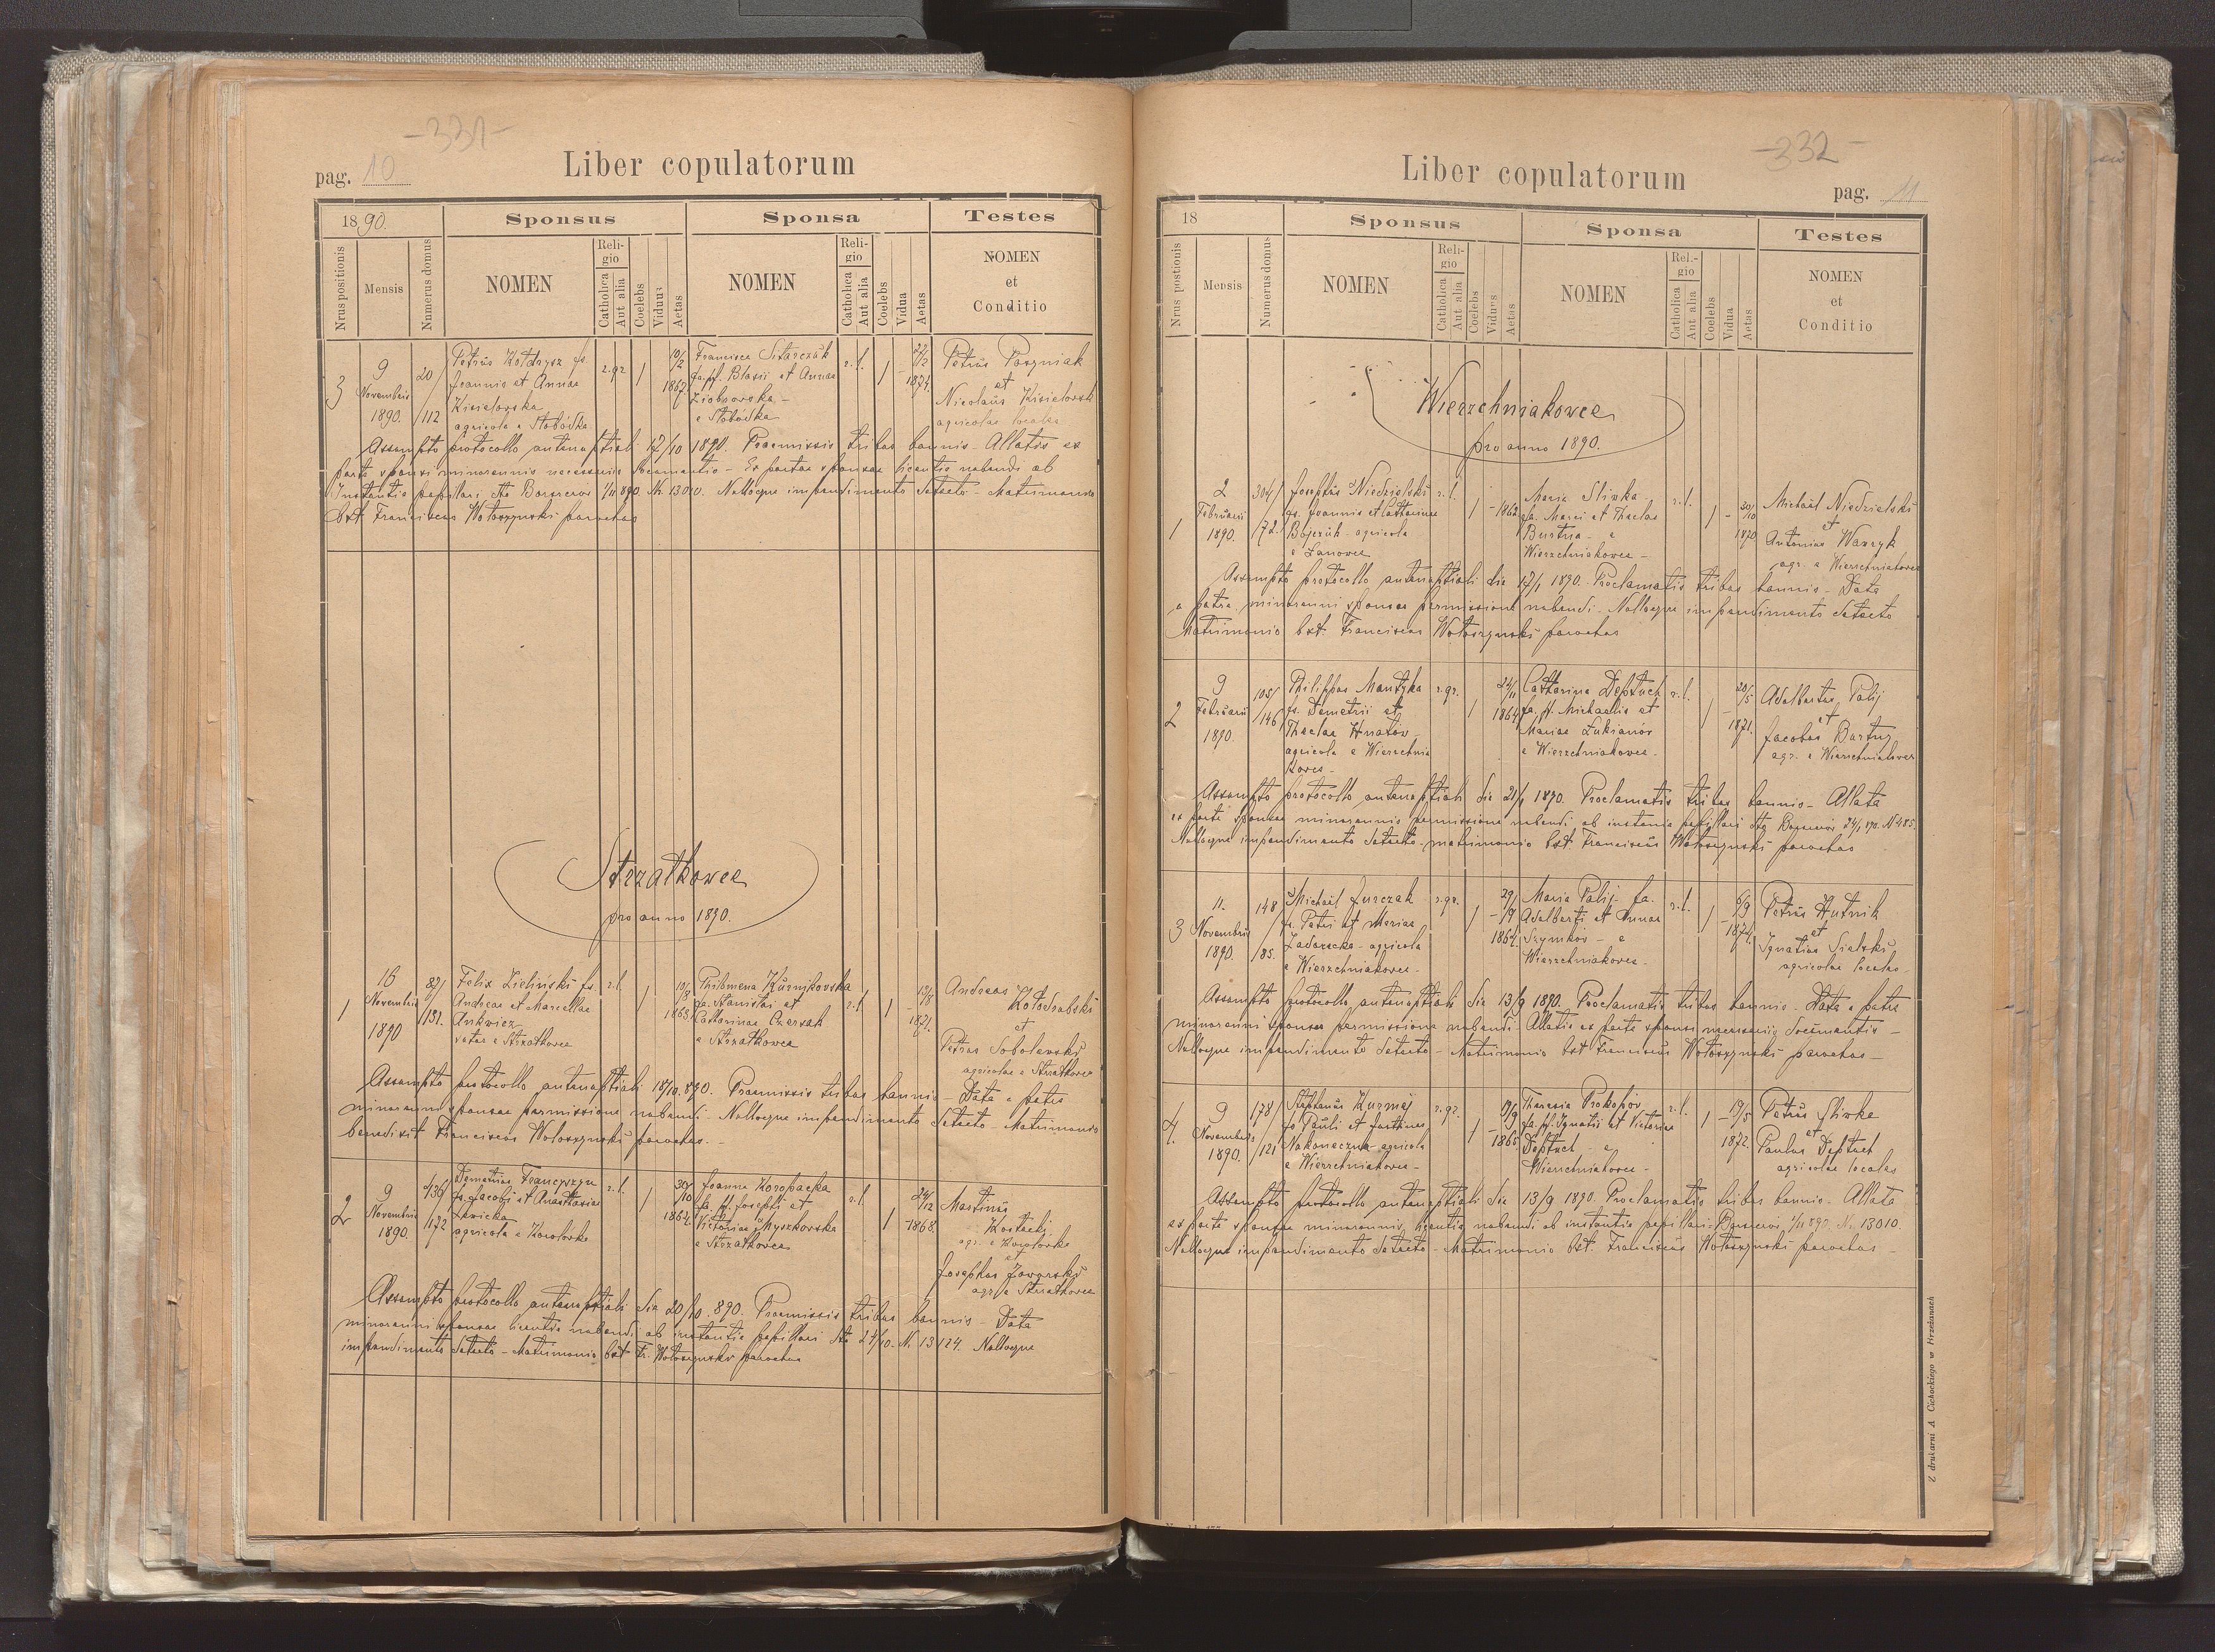 -331-
pag. 10
Liber copulatorum
1890.
Sponsus
Sponsa
Testes
Nrus positionis
Mensis
Numerus domus
NOMEN
Religio
Catholica
Aut alia
Coelebs
Viduus
Aetas
NOMEN
Religio
Catholica
Aut alia
Coelebs
Vidua
Aetas
NOMEN
et
Conditio
3
9
Novembris
1890.
20/
/112
Petrus Kołdrysz fs.
Joannis et Annae
Kisielowska
agricola e Słobódka
r.gr.
1
10/2
1867.
Francisca Sitarczuk
fa. pf. Blasii et Annae
Ziobrowska -
e Słobódka
r.l.
1
1874.
Petrus Poszniak
et
Nicolaus Kisielowski
agricolae locales
Assumpto protocollo antenuptiali 17/10 1890. Praemissis tribus bannis - Allatis ex
parte sponsi minorennis necessariis documentis - Ex parte sponsae licentia nubendi ab
Instantia pupillari dto Borszczów 1/11 890. Nr. 13010. Nulloque impedimento detecto - Matrimonio
bxt. Franciscus Wołoszynski parochus
Strzałkowce
pro anno 1890.
1
16
Novembris
1890
87/
/131.
Felix Zieliński fs.
Andreae et Marcellae
Ankwicz
e Strzałkowce
r.l.
1
10/3
1863.
Philomena Kurnikowska
fa. Stanislai et
Catharinae Czerzak
e Strzałkowce
r.l.
1
13/8
1871.
Andreas
Kołodrubski
et
Petrus Sobolewski
agricolae e Strzałkowce
Assumpto protocollo antenuptiali 18/10 890. Praemissis tribus bannis - Data a patre
minorenni sponsae permissione nubendi - Nulloque impedimento detecto - Matrimonio
benedixit Franciscus Wołoszynski parochus. -
2
9
Novembris
1890.
436/
/172
Demetrius Francyszyn
fs. Jacobi et Anastasiae
Lewicka
agricola e Korolówka
r.l.
1
30/10
1864.
Joanna Koropacka
fa. pf. Josephi et
Victoriae Myszkowska
e Strzałkowce
r.l.
1
24/12
1868.
Martinus
Kostecki
agr. e Korolówka
et
Josephus Jaworski
agr. e Strzałkowce
Assumpto protocollo antenuptiali die 20/10 890. Praemissis tribus bannis - Data
minorenni sponsae licentia nubendi ab instantia pupillari dto 24/10 - N. 13124. Nulloque
impedimento detecto - Matrimonio bxt Fr. Wołoszynski parochus
-332-
Liber copulatorum
pag. 11
18
Sponsus
Sponsa
Testes
Nrus postionis
Mensis
Numerus domus
NOMEN
Religio
Catholica
Aut alia
Coelebs
Viduus
Aetas
NOMEN
Rel.-gio
Catholica
Aut alia
Coelebs
Vidua
Aetas
NOMEN
et
Conditio
Wierzchniakowce
pro anno 1890.
1
2
Februarii
1890.
304/
/72.
Josephus Niedzielski
fs. Joannis et Catharinae
Bojczuk - agricola
e Łanowce
r.l.
1
1862.
Maria Śliwka
fa. Marci et Theclae
Burtna - e
Wierzchniakowce -
r.l.
1
30/10
1870
Michael Niedzielski
et
Antonius Wawryk
agr. e Wierzchniakowce
Assumpto protocollo antenuptiali die 17/1 1890. - Proclamatis tribus bannis - Data
a patre minorenni sponsae permissione nubendi - Nulloque impedimento detecto
Matrimonio bxt. Franciscus Wołoszynski parochus
2
9
Februarii
1890.
105/
/146
Philippus Mantyka
fs. Demetrii et
Theclae Hnatów -
agricola e Wierzchnia
kowce -
r.gr.
1
24/11
1864
Catharina Deptuch
fa. pf. Michaelis et
Mariae Łukianów
e Wierzchniakowce -
r.l.
1
20/5
1871.
Adalbertus Palij
et
Jacobus Burtny
agr. e Wierzchniakowce
Assumpto protocollo antenuptiali die 21/1 1890. Proclamatis tribus bannis - Allata
ex parte sponsae minorennis permissione nubendi ab instantia pupillari dto Borszczów 24/1 890. N 485.
Nulloque impedimento detecto - matrimonio bxt. Franciscus Wołoszynski parochus
3
11.
Novembris
1890.
148
/85.
Michael Jurczak
fs. Petri et Mariae
Zadorecka - agricola
e Wierzchniakowce -
r.gr.
1
1864.
Maria Palij - fa.
Adalberti et Annae
Szymków - e
Wierzchniakowce.
r.l.
1
6/9
1874.
Petrus Hutnik
et
Ignatius Sielski
agricolae locales.
Assumpto protocollo antenuptiali die 13/9 1890. Proclamatis tribus bannis - Data a patre
minorenni sponsae permissione nubendi - Allatis ex parte sponsi necessariis documentis -
Nulloque impedimento detecto - Matrimonio bxt Franciscus Wołoszynski parochus -
4.
9
Novembris
1890.
178/
/121
Stephanus Kurmij
fs. Pauli et Justinae
Nakoneczna - agricola
e Wierzchniakowce -
r.gr.
1
19/9
1865.
Theresia Prokopów
fa. pf. Ignatii et Victoriae
Deptuch - e
Wierzchniakowce -
r.l.
1
19/5
1872.
Petrus Śliwka
et
Paulus Deptuch
agricolae locales
Assumpto protocollo antenuptiali die 13/9 1890. Proclamatis tribus bannis - Allata
ex parte sponsae minorennis licentia nubendi ab instantia pupillari - Borszczów 1/11 890. N. 13010.
Nulloque impedimento detecto - Matrimonio bxt. Franciscus Wołoszynski parochus -
Z drukarni A Cichockiego w Brzeżanach